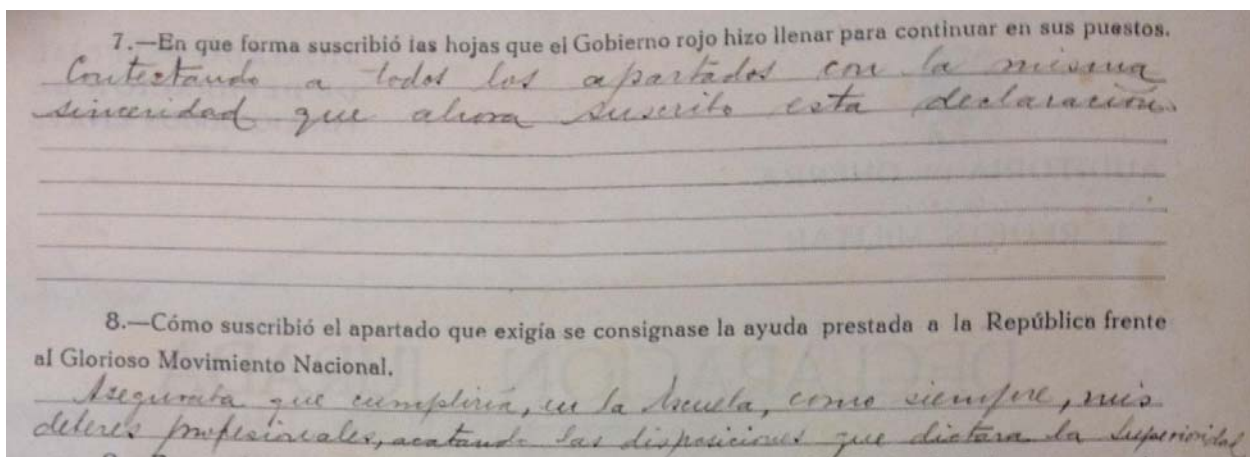 7.—En que forma suscribió las hojas que el Gobierno rojo hizo llenar para continuar en sus puestos.
Contestando a todos los apartados con la misma
sinceridad que ahora suscribo esta declaración.
8.—Cómo suscribió el apartado que exigía se consignase la ayuda prestada a la República frente
al Glorioso Movimiento Nacional.
Aseguraba que cumpliría, en la Escuela, como siempre, mis
deberes profesionales, acatando las disposiciones que dictara la Superioridad